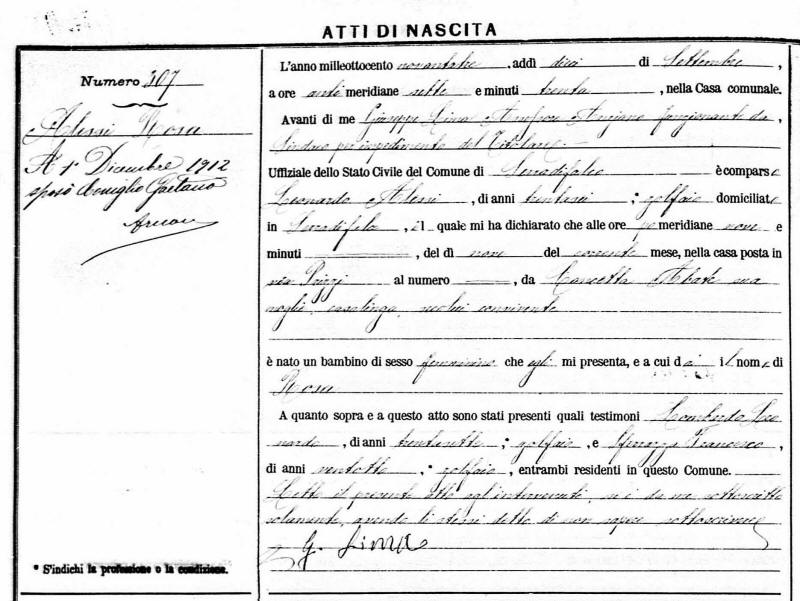 ATTI DI NASCITA
Numero 307
Alessi Rosa
A 1° Dicembre 1912
sposò Gaetano
L'anno millottocento novantatre, addì dieci di Settembre,
a ore anti meridiane sette e minuti trenta, nella Casa comunale.
Avanti di me Giuseppe Lima Assessore Anziano funzionante da,
Sindaco per impedimento del Titolare
Uffiziale dello Stato Civile del Comune di Serradifalco è comparso
Leonardo Alessi, di anni trentasei; zolfaio domiciliato
in Serradifalco, il quale mi ha dichiarato che alle ore po meridiane nove e
minuti, del dì nove del corrente mese, nella casa posta in
via Pozzi al numero, da Concetta Abate sua
moglie, casalinga, seco lui convivente
è nato un bambino di sesso femminino che egli mi presenta, e a cui dà il nome di
Rosa
A quanto sopra e a questo atto sono stati presenti quali testimoni Lombardo Leo
nardo, di anni trentasette; zolfaio, e Sferrazza Francesco,
di anni ventotto,; zolfaio, entrambi residenti in questo Comune.
Letto il presente atto agl'intervenuti, si è da me sottoscritto
solamente, avendo li stessi detto di non sapere sottoscrivere
G. Lima
* S'indichi la professione o la condizione.